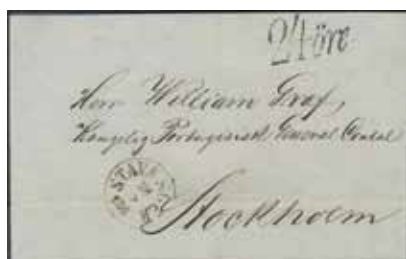 24 öre
Herr William Graf,
Kongelig Portugisisk General Consul
STAVA
Stockholm